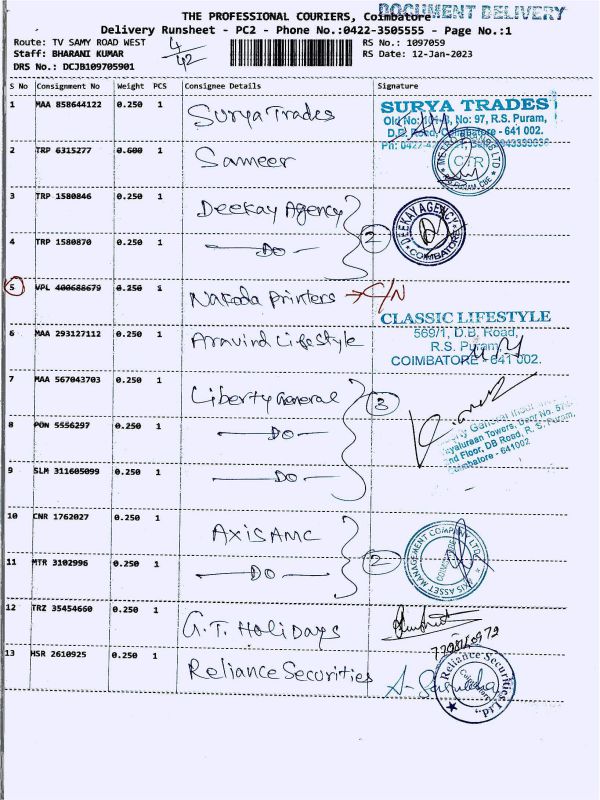 DOCUMENT DELIVERY
THE PROFESSIONAL COURIERS, Coimbatore
Delivery Runsheet - PC2 - Phone No.:0422-3505555 - Page No.:1
Route: TV SAMY ROAD WEST 4/42 RS No.: 1097059
Staff: BHARANI KUMAR RS Date: 12-Jan-2023
DRS No.: DCJB109705901
S No Consignment No Weight PCS Consignee Details Signature
1 MAA 858644122 0.250 1 Surya Trades
SURYA TRADES
No: 97, R.S. Puram,
D.B. Road, Coimbatore - 641 002.
2 TRP 6315277 0.600 1 Sameer
CTR
3 TRP 1580846 0.250 1 Deekay Agency
2
DEEKAY AGENCY
COIMBATORE
4 TRP 1580870 0.250 1 — DO —
5 VPL 400688679 0.250 1 Nakoda Printers → C/N
CLASSIC LIFESTYLE
569/1, D.B. Road,
R.S. Puram,
COIMBATORE - 641 002.
6 MAA 293127112 0.250 1 Aravind Lifestyle
7 MAA 567043703 0.250 1 Liberty General
3
8 PON 5556297 0.250 1 — DO —
2nd Floor, DB Road, R. S. Puram,
Coimbatore - 641002
9 SLM 311605099 0.250 1 — DO —
10 CNR 1762027 0.250 1 AXIS AMC
2
AXIS ASSET MANAGEMENT COMPANY LTD.
COIMBATORE
11 MTR 3102996 0.250 1 — DO —
12 TRZ 35454660 0.250 1 G.T. Holidays
13 HSR 2610925 0.250 1 Reliance Securities
Reliance Securities Ltd.
Coimbatore